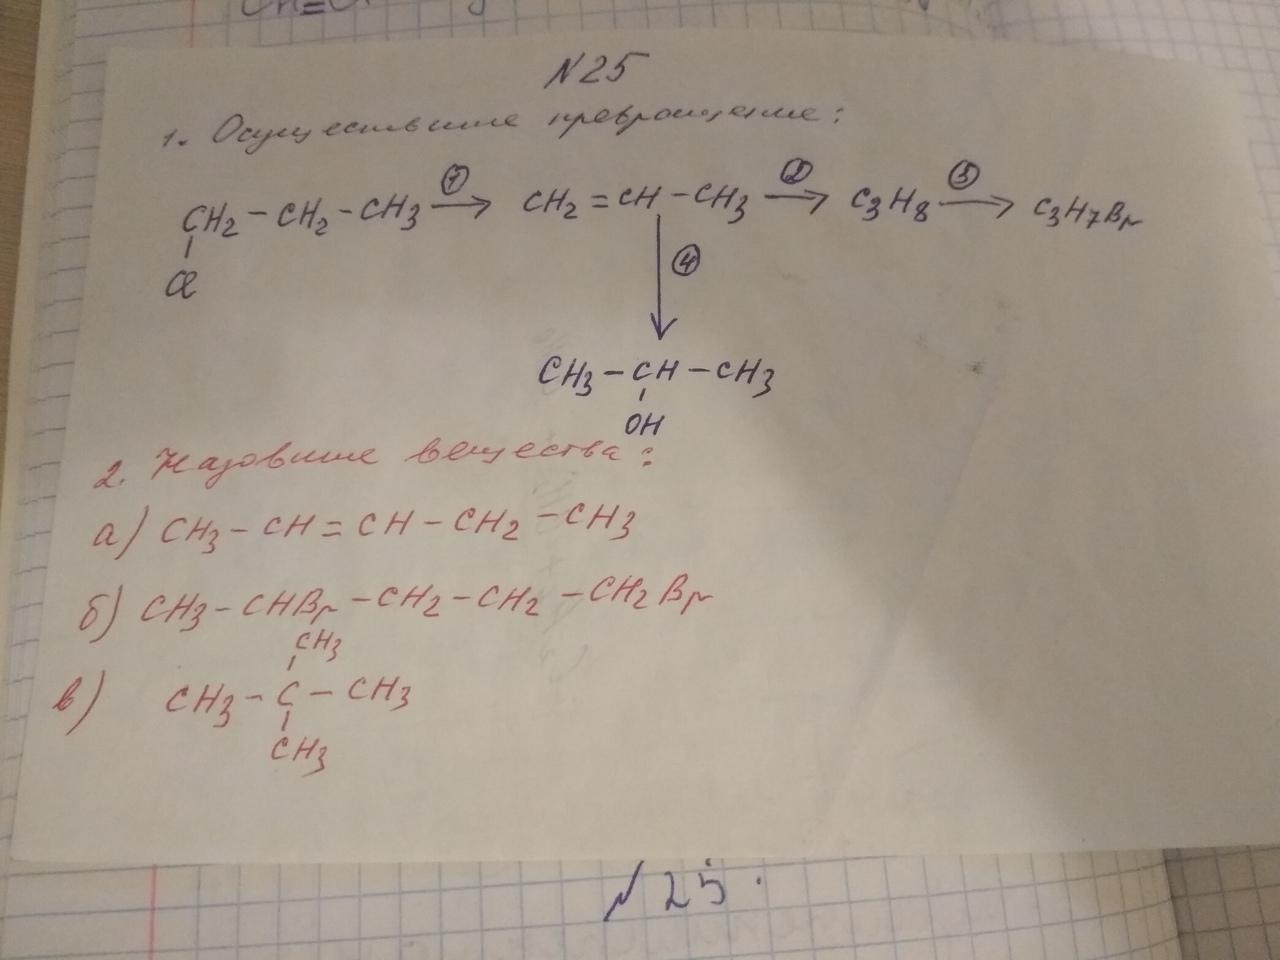 №25
1. Осуществите превращение:
CH2 – CH2 – CH3 ①→ CH2 = CH – CH3 ②→ C3H8 ③→ C3H7Br
Cl
④
CH3 – CH – CH3
OH
2. Назовите вещества:
а) CH3 – CH = CH – CH2 – CH3
б) CH3 – CHBr – CH2 – CH2 – CH2Br
CH3
в) CH3 – C – CH3
CH3
№25.